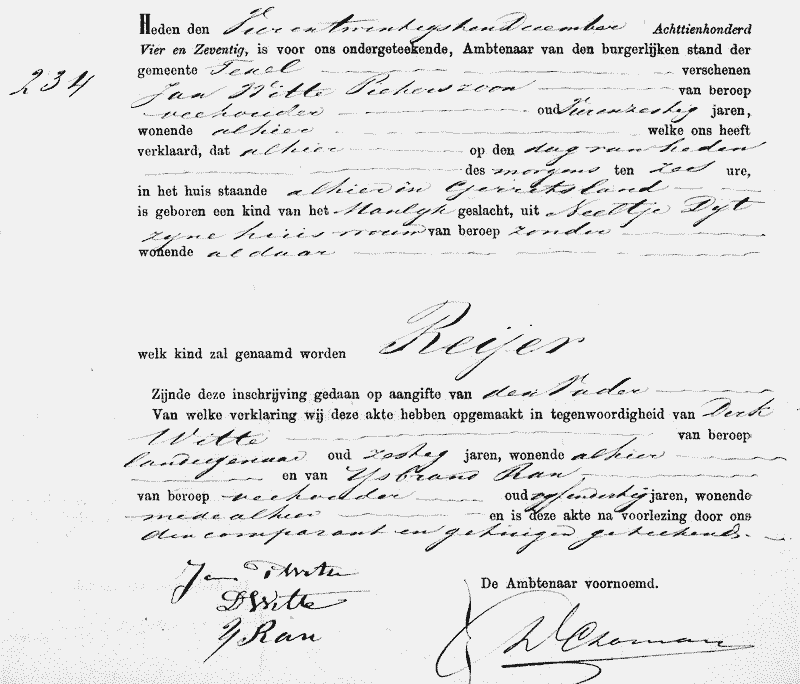 Heden den Vierentwintigsten December Achttienhonderd
Vier en Zeventig, is voor ons ondergeteekende, Ambtenaar van den burgerlijken stand der
gemeente Texel verschenen
234
Jan Witte Pieterszoon van beroep
veehouder oud Vierenzestig jaren,
wonende alhier welke ons heeft
verklaard, dat alhier op den dag van heden
des morgens ten zes ure,
in het huis staande alhier in Gerritsland
is geboren een kind van het Manlyk geslacht, uit Neeltje Dyt
zyne huisvrouw van beroep zonder
wonende aldaar
welk kind zal genaamd worden Reijer
Zijnde deze inschrijving gedaan op aangifte van den Vader
Van welke verklaring wij deze akte hebben opgemaakt in tegenwoordigheid van Dirk
Witte van beroep
landeigenaar oud zestig jaren, wonende alhier
en van Ysbrand Ran
van beroep veehouder oud jaren, wonende
mede alhier en is deze akte na voorlezing door ons
den comparant en getuigen geteekend.
Jan Witte
D Witte
Y Ran
De Ambtenaar voornoemd.